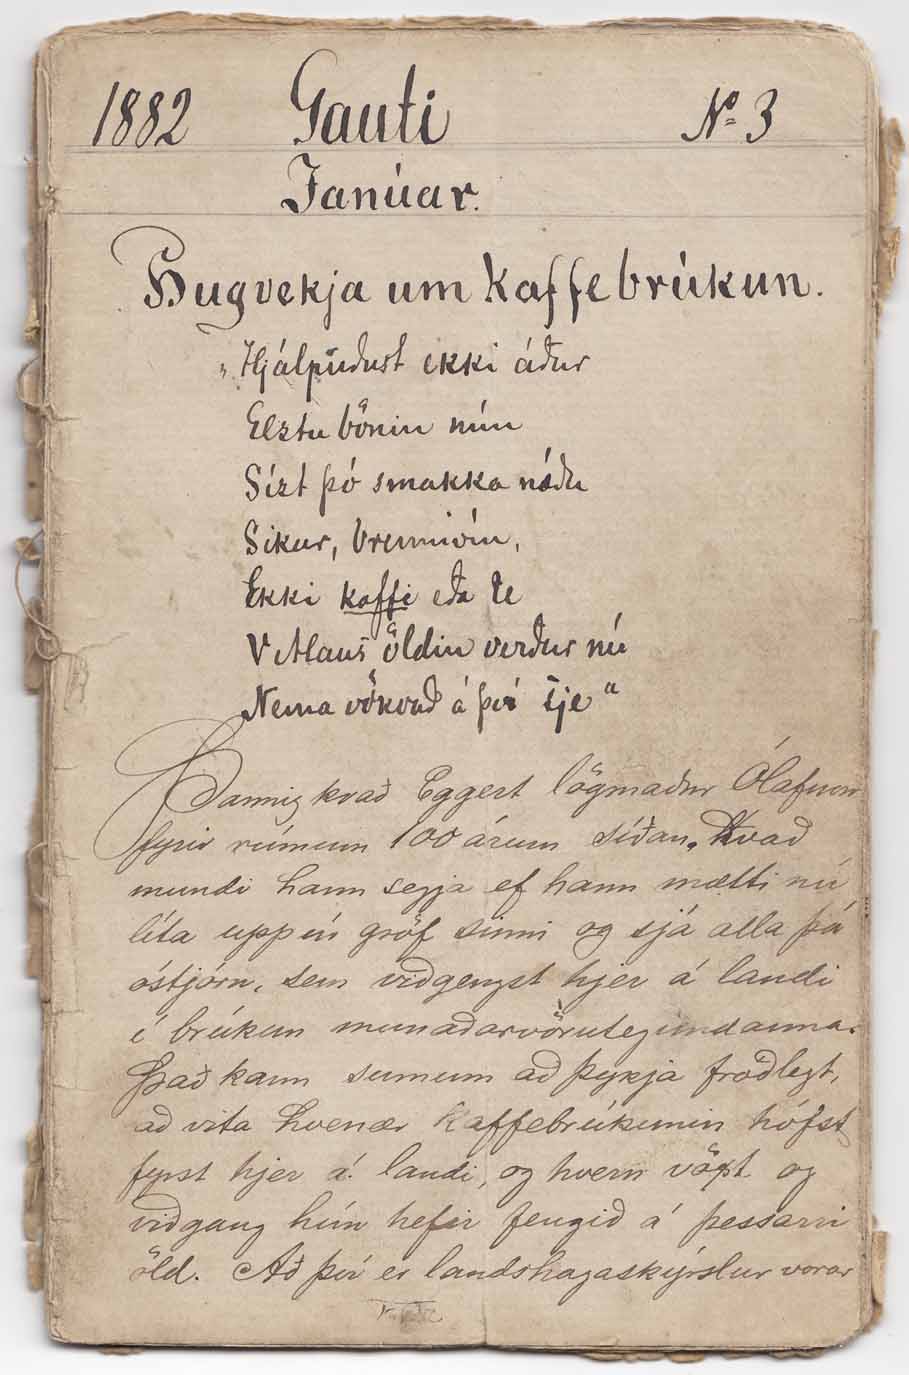 1882 Gauti Nº 3
Janúar.
Hugvekja um kaffebrúkun.
„Hjálpuðust ekki áður
Elztu börnin mín
Sízt þó smakka náðu
Sikur, brennivín,
Ekki kaffi eða te
Vitlaus öldin verður nú
Nema vökvað á því sje“
Þannig kvað Eggert lögmaður Ólafsson
fyrir rúmum 100 árum síðan. Hvað
mundi hann segja ef hann mætti nú
líta upp úr gröf sinni og sjá alla þá
óstjórn, sem viðgengst hjer á landi
í brúkun munaðarvörutegundanna.
Það kann sumum að þykja fróðlegt,
að vita hvenær kaffebrúkunin hófst
fyrst hjer á landi, og hvern vöxt og
viðgang hún hefir fengið á þessarri
öld. Að því er landshagaskýrslur vorar